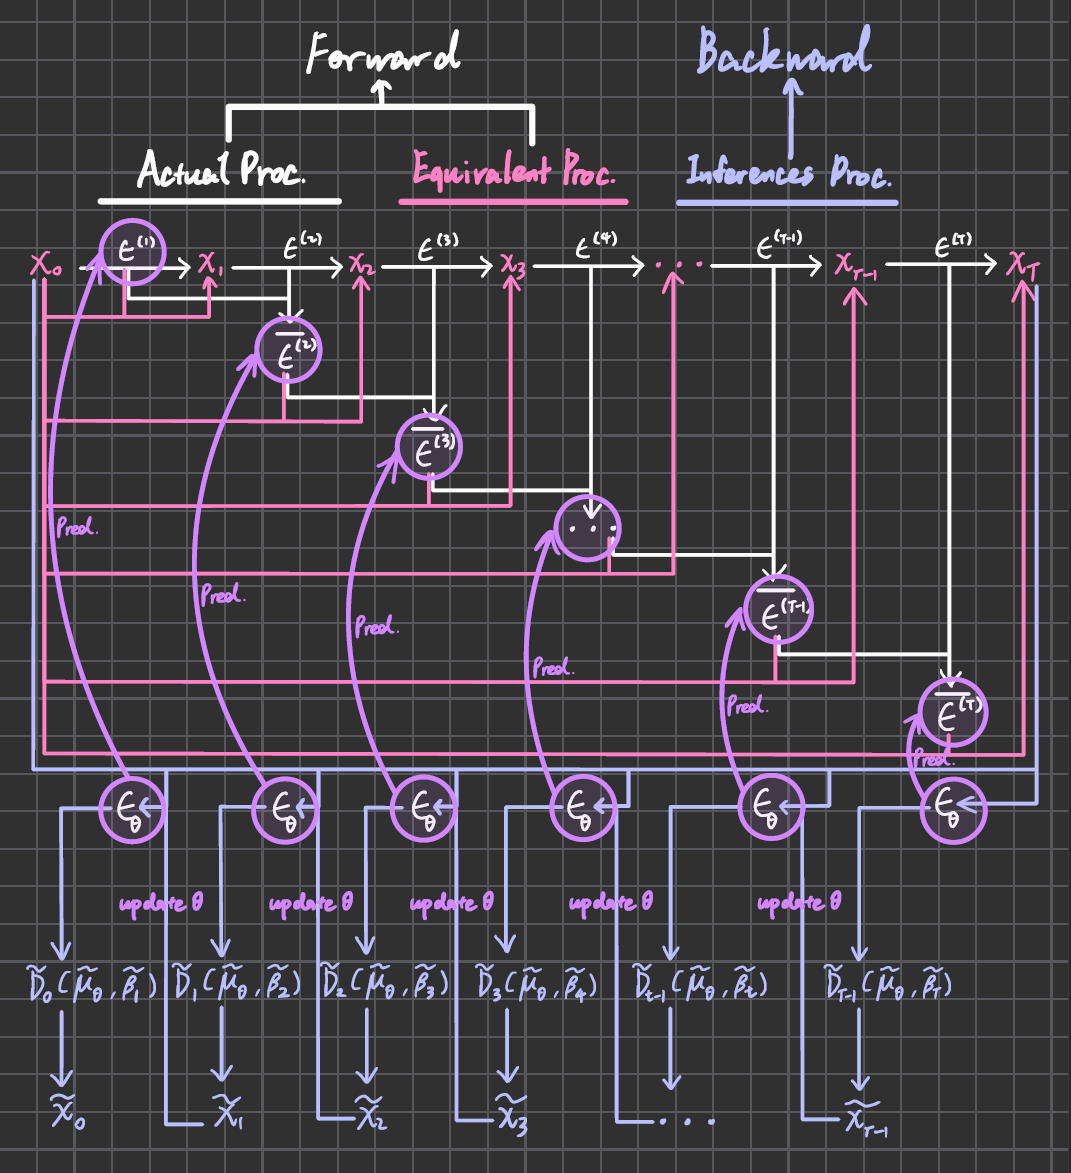 Forward Backward
Actual Proc. Equivalent Proc. Inferences Proc.
ϵ^(1) ϵ^(2) ϵ^(3) ϵ^(4) ϵ^(T-1) ϵ^(T)
x₀ x₁ x₂ x₃ ... x_T-1 x_T
ϵ̅^(2)
ϵ̅^(3)
...
ϵ̅^(T-1)
ϵ̅^(T)
Pred. Pred. Pred. Pred. Pred. Pred.
ϵ_θ ϵ_θ ϵ_θ ϵ_θ ϵ_θ ϵ_θ
update θ update θ update θ update θ update θ
D̃₀(μ̃_θ, β̃₁) D̃₁(μ̃_θ, β̃₂) D̃₂(μ̃_θ, β̃₃) D̃₃(μ̃_θ, β̃₄) D̃_t-1(μ̃_θ, β̃_t) D̃_T-1(μ̃_θ, β̃_T)
x̃₀ x̃₁ x̃₂ x̃₃ ... x̃_T-1